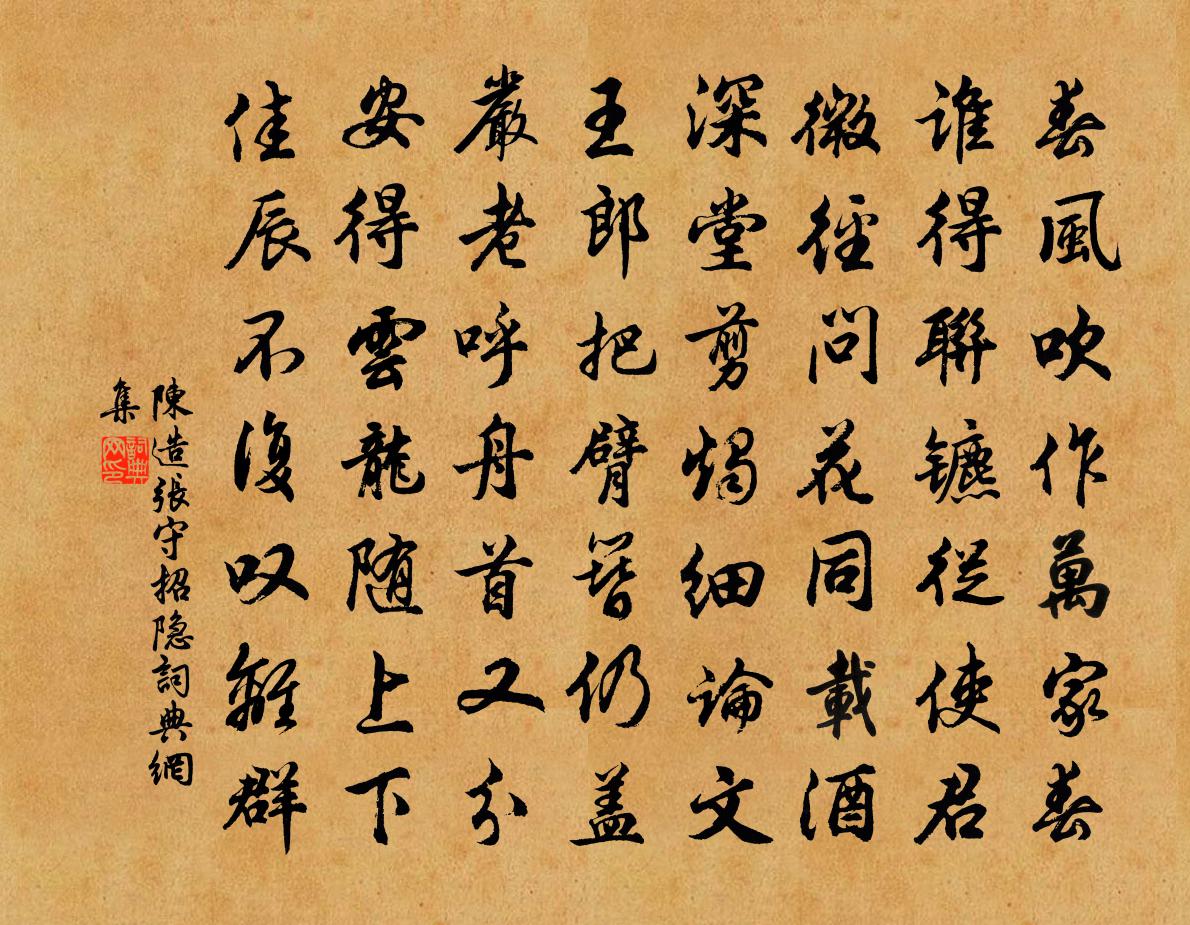 春風吹作萬家春
誰得聯镳從使君
微徑問花同載酒
深堂剪燭細論文
王郎把臂簪仍盖
嚴老呼舟首又分
安得雲龍随上下
佳辰不復叹離群
陳造張守招隐詞典網
集